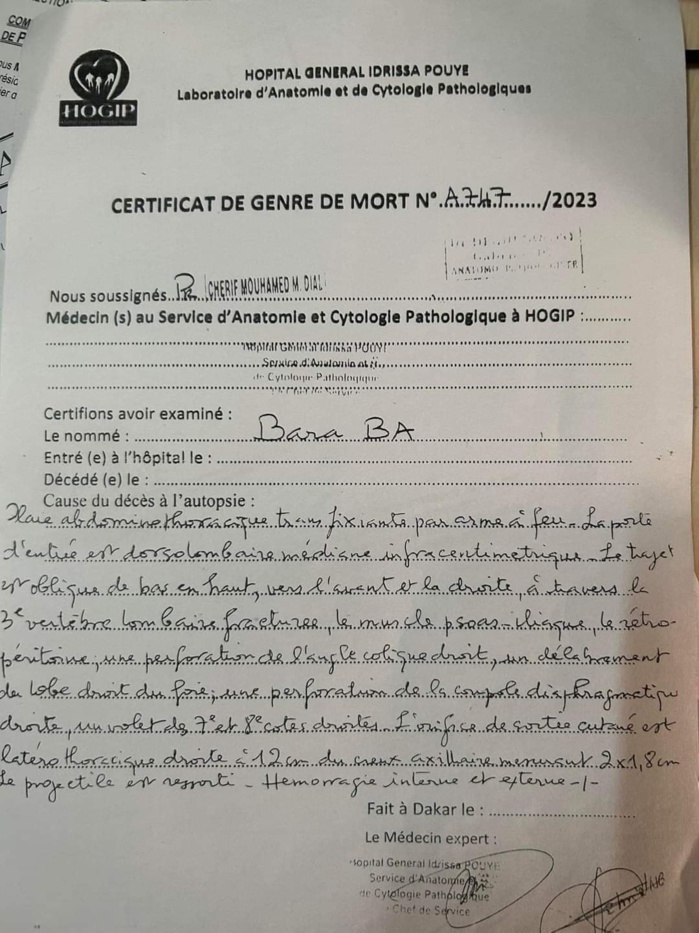 COM
DE P
HOGIP
HOPITAL GENERAL IDRISSA POUYE
Laboratoire d'Anatomie et de Cytologie Pathologiques
CERTIFICAT DE GENRE DE MORT N°.A747....../2023
Nous soussignés Pr CHERIF MOUHAMED M. DIAL
Médecin (s) au Service d'Anatomie et Cytologie Pathologique à HOGIP :
Hopital General Idrissa POUYE
Service d'Anatomie et
de Cytologie Pathologique
Certifions avoir examiné :
Le nommé : Bara BA
Entré (e) à l'hôpital le :
Décédé (e) le :
Cause du décès à l'autopsie :
Plaie abdominothoracique transfixiante par arme à feu - La porte
d'entrée est dorsolombaire médiane infracentimétrique - Le trajet
est oblique de bas en haut, vers l'avant et la droite, à travers la
3e vertèbre lombaire fracturée, le muscle psoas-iliaque, le rétro-
péritoine, une perforation de l'angle colique droit, un délabrement
du lobe droit du foie, une perforation de la coupole diaphragmatique
droite, un volet de 7e et 8e cotes droites - L'orifice de sortie cutané est
latérothoracique droite à 12 cm du creux axillaire mesurant 2x1,8cm
Le projectile est ressorti - Hemorragie interne et externe -/-
Fait à Dakar le :
Le Médecin expert :
Hopital General Idrissa POUYE
Service d'Anatomie
de Cytologie Pathologique
Chef de Service